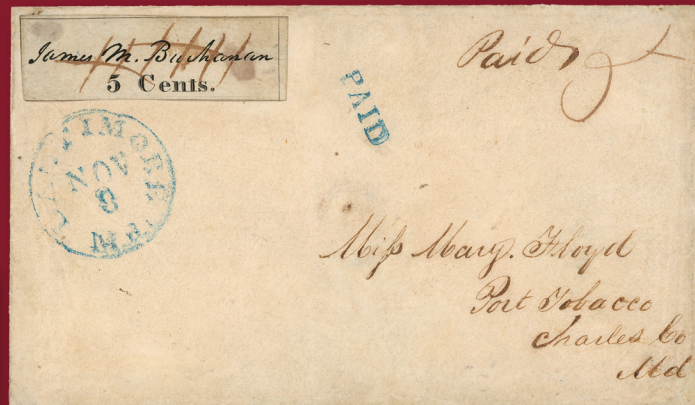 James M. Buchanan
5 Cents.
Paid
PAID
BALTIMORE Md.
NOV
8
Miſs Mary. Floyd
Port Tobacco
Charles Co
Md